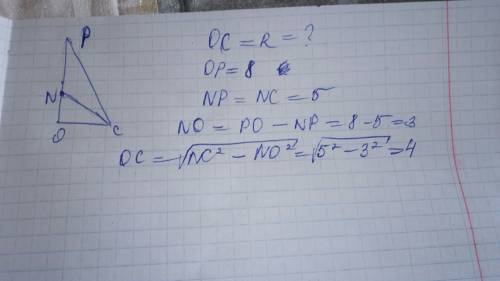 P
N
O
C
OC = R = ?
OP = 8
NP = NC = 5
NO = PO - NP = 8 - 5 = 3
OC = √NC² - NO² = √5² - 3² = 4